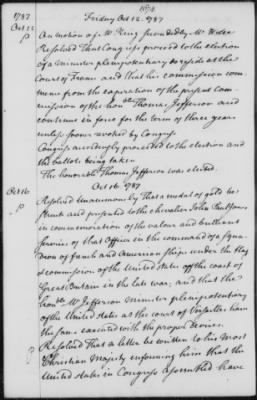 1787
Friday Oct 12. 1787
Oct 12
p
On motion of Mr King seconded by Mr Kean
Resolved That Congress proceed to the election
of a minister plenipotentiary to reside at the
Court of France and that his commission com
mence from the expiration of the present com
mission of the honble Thomas Jefferson and
continue in force for the term of three years
unless sooner revoked by Congress
Congress accordingly proceeded to the election and
the ballots being taken
The honorable Thomas Jefferson was elected.
Oct 16. 1787
Oct 16
p
Resolved Unanimously That a medal of gold be
struck and presented to the chevalier John Paul Jones
in commemoration of the valour and brilliant
services of that Officer in the command of a squa
dron of french and American Ships under the flag
& commission of the United States off the coast of
Great Britain in the late war; and that the
honble Mr Jefferson Minister plenipotentiary
of the United States at the court of Versailles have
the same executed with the proper devices.
p
Resolved That a letter be written to his Most
Christian Majesty informing him that the
United States in Congress Assembled have